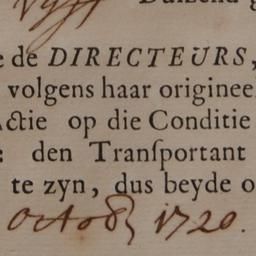 Vyff Duizend g
e de DIRECTEURS,
volgens haar originee
Actie op die Conditie
: den Tranſportant
te zyn, dus beyde o
Octob 1720.